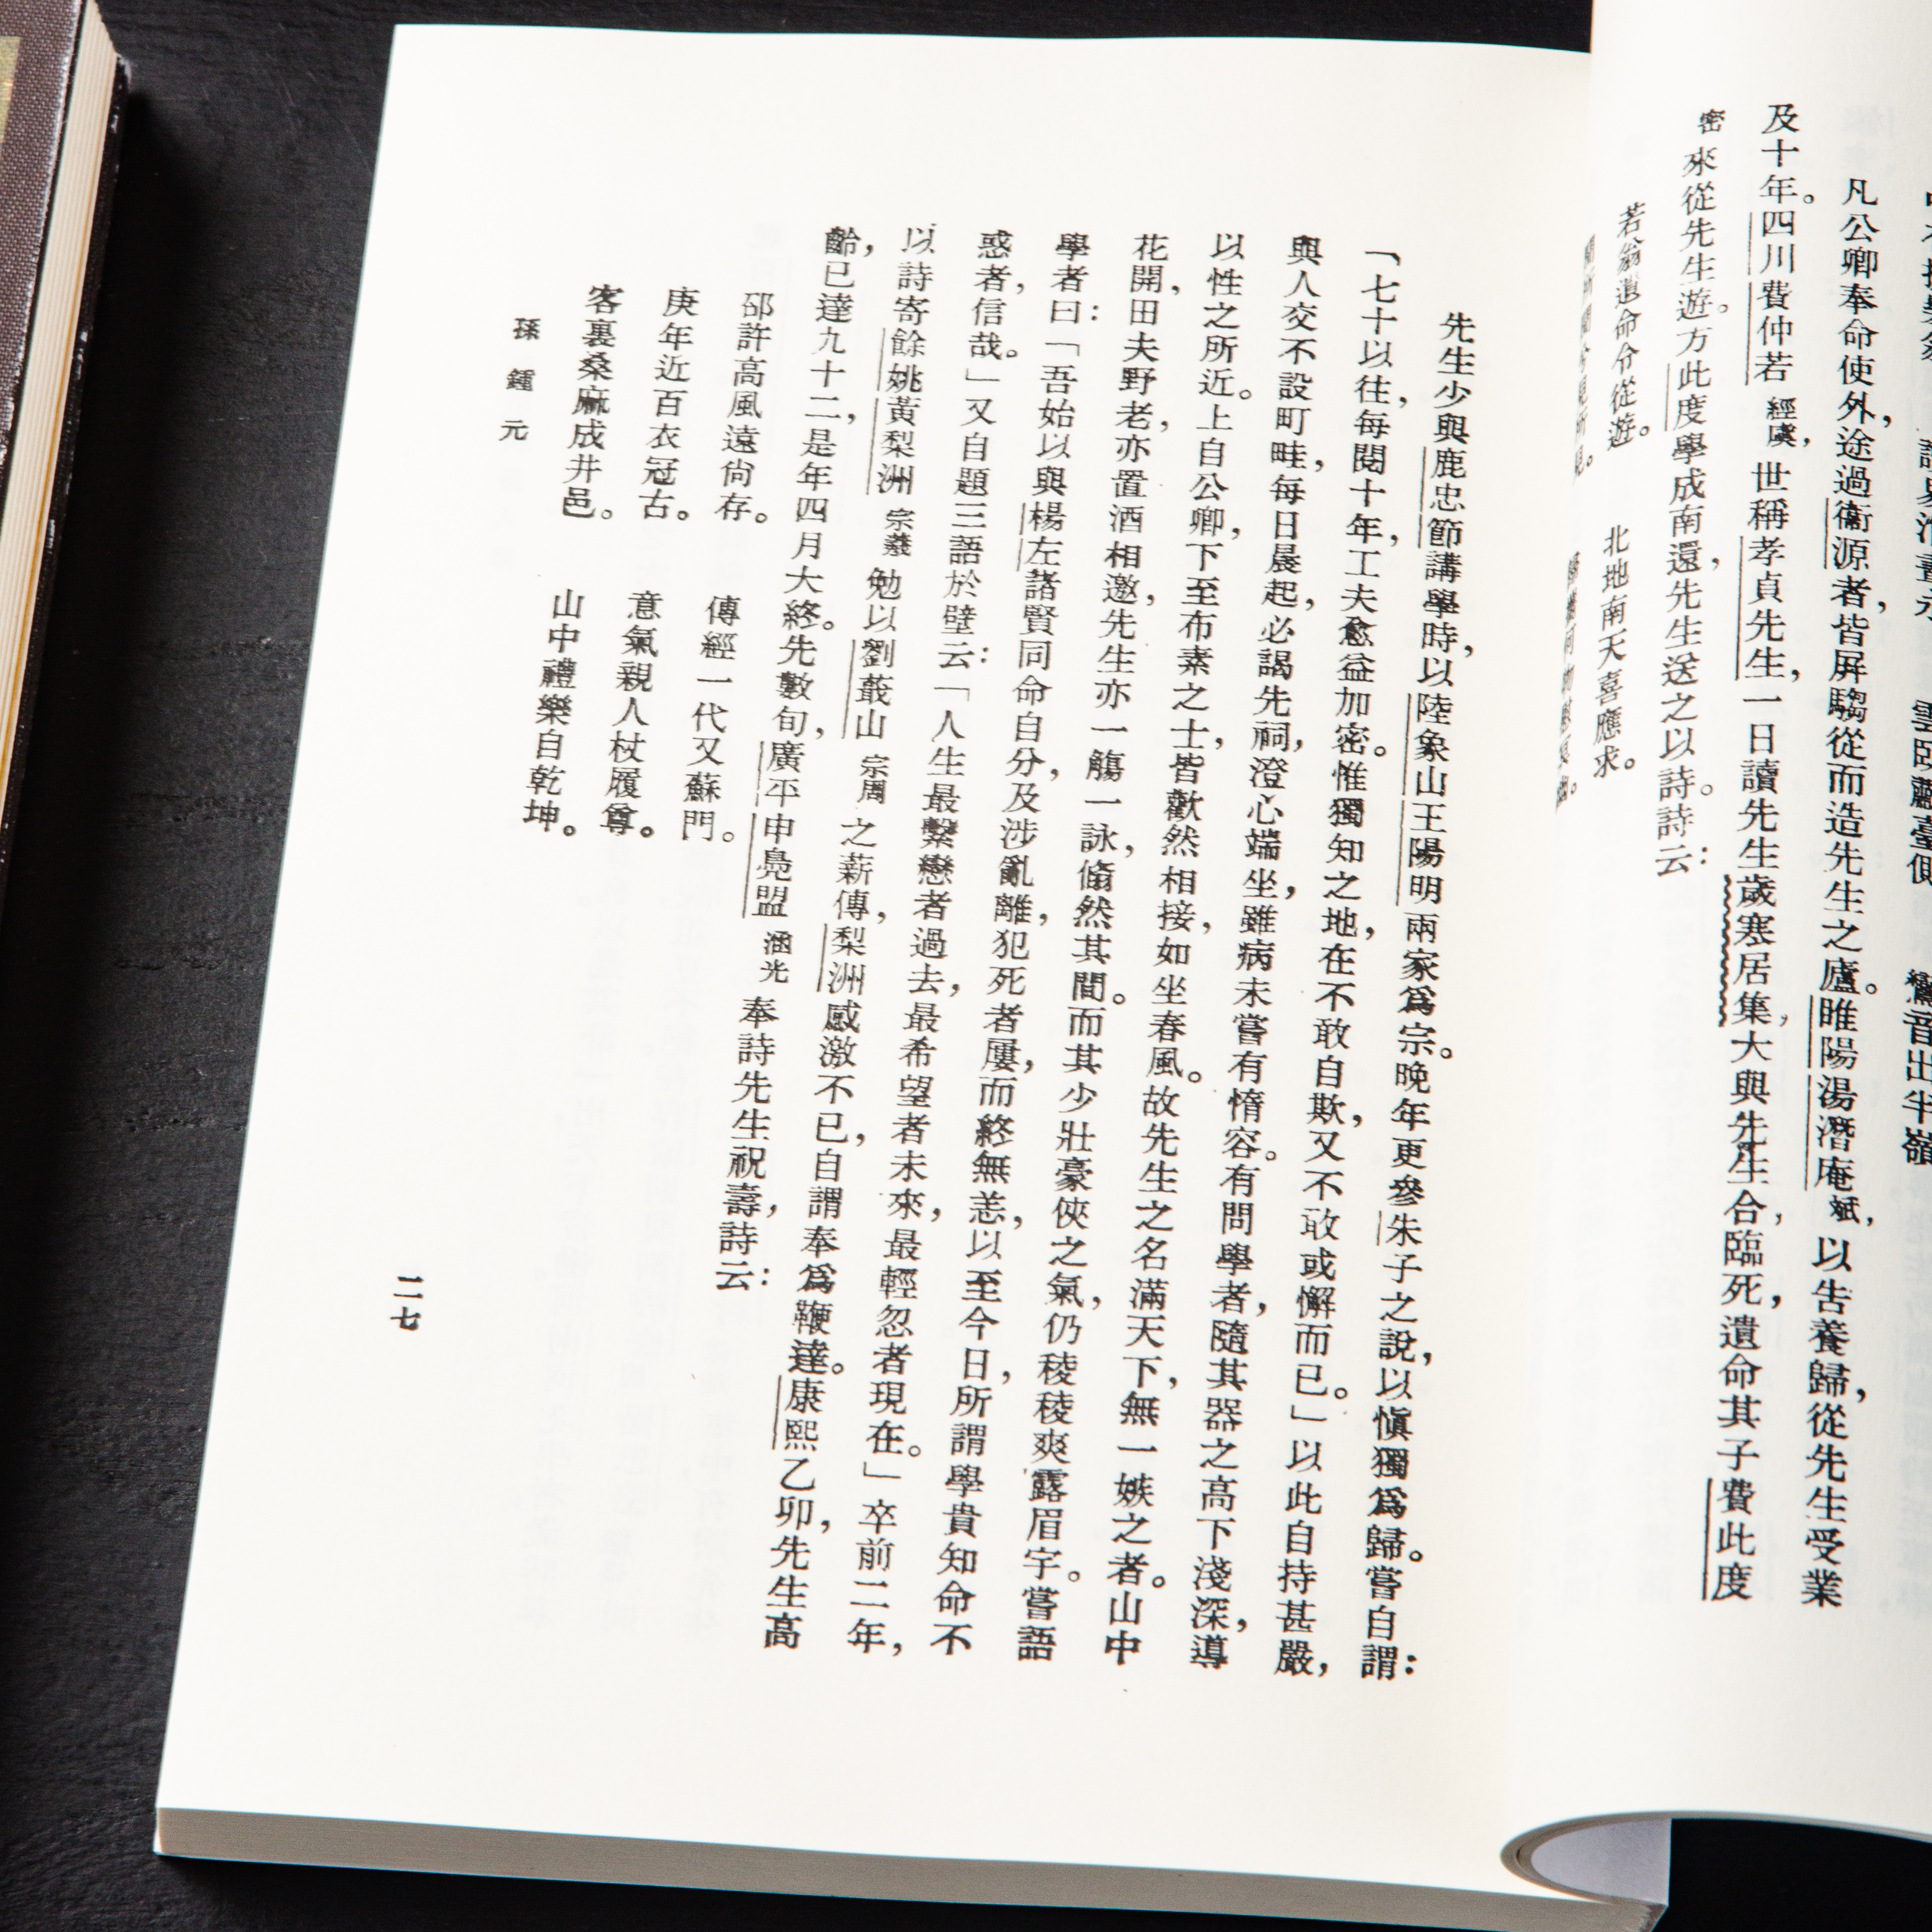 凡公卿奉命使外，途過衞源者，皆屏騶從而造先生之廬。睢陽湯潛庵斌，以告養歸，從先生受業
及十年。四川費仲若經虞，世稱孝貞先生，一日讀先生歲寒居集，大與先生合，臨死，遺命其子費此度
密來從先生遊。方此度學成南還，先生送之以詩。詩云：
若翁遺命令從遊。　北地南天喜應求。
先生少與鹿忠節講學時，以陸象山王陽明兩家爲宗。晚年更參朱子之說，以愼獨爲歸。嘗自謂：
「七十以往，每閱十年，工夫愈益加密。惟獨知之地，在不敢自欺，又不敢或懈而已。」以此自持甚嚴，
與人交不設町畦，每日晨起，必謁先祠，澄心端坐，雖病未嘗有惰容。有問學者，隨其器之高下淺深，導
以性之所近。上自公卿，下至布素之士，皆歡然相接，如坐春風。故先生之名滿天下，無一嫉之者。山中
花開，田夫野老，亦置酒相邀，先生亦一觴一詠，翛然其間。而其少壯豪俠之氣，仍稜稜爽露眉宇。嘗語
學者曰：「吾始以與楊左諸賢同命自分，及涉亂離，犯死者屢，而終無恙，以至今日，所謂學貴知命不
惑者，信哉。」又自題三語於壁云：「人生最繫戀者過去，最希望者未來，最輕忽者現在。」卒前二年，
以詩寄餘姚黃梨洲宗羲勉以劉蕺山宗周之薪傳，梨洲感激不已，自謂奉爲鞭達。康熙乙卯，先生高
齡，已達九十二，是年四月大終。先數旬，廣平申鳧盟涵光奉詩先生祝壽，詩云：
邵許高風遠尙存。　傳經一代又蘇門。
庚年近百衣冠古。　意氣親人杖履尊。
客裏桑麻成井邑。　山中禮樂自乾坤。
孫鍾元
二七